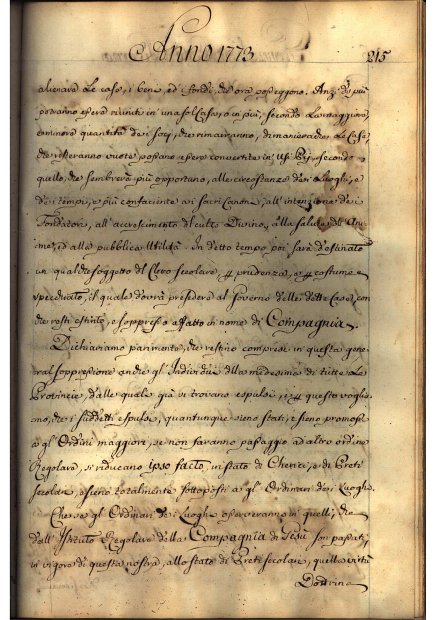 Anno 1773
215
alienare le case, i beni, ed i fondi, che ora posseggono. Anzi di più
potranno essere riuniti in una sol Casa, o in più, secondo la maggiore,
o minore quantità dei socj, che rimarranno, di maniera che le Case,
che resteranno vuote, possano essere convertite in usi Pij, secondo
quello, che sembrerà più opportuno, alle circostanze dei Luoghi, e
dei tempi, e più confaciente ai Sacri Canoni, all'intenzione dei
Fondatori, all'accrescimento del culto Divino, alla salute dell'Ani-
me, ed alla pubblica Utilità. In detto tempo poi sarà destinato
un qualche soggetto del Clero secolare, prudenza, e costume
specchiato, il quale dovrà presiedere al governo delle dette Case, con
che resti estinto, e soppresso affatto in nome di Compagnia.
Dichiariamo parimente, che restino compresi in questa gene-
ral soppressione anche gl'Individui della medesima di tutte le
Provincie, dalle quali già si trovano espulsi, e questo voglia-
mo, che i suddetti espulsi, quantunque sieno stati, e sieno promossi
a gl'Ordini maggiori, se non faranno passaggio ad altro ordine
Regolare, si riducano ipso facto, in stato di Cherici, e di Preti
secolari, e sieno totalmente sottoposti ai gl'Ordinari dei Luoghi.
Che se gl'Ordinari dei Luoghi osserveranno in quelli, che
dall'Istituto Regolare della Compagnia di Gesù son passati,
in vigore di questa nostra, allo stato di Preti secolari, quella virtù
Dottrina